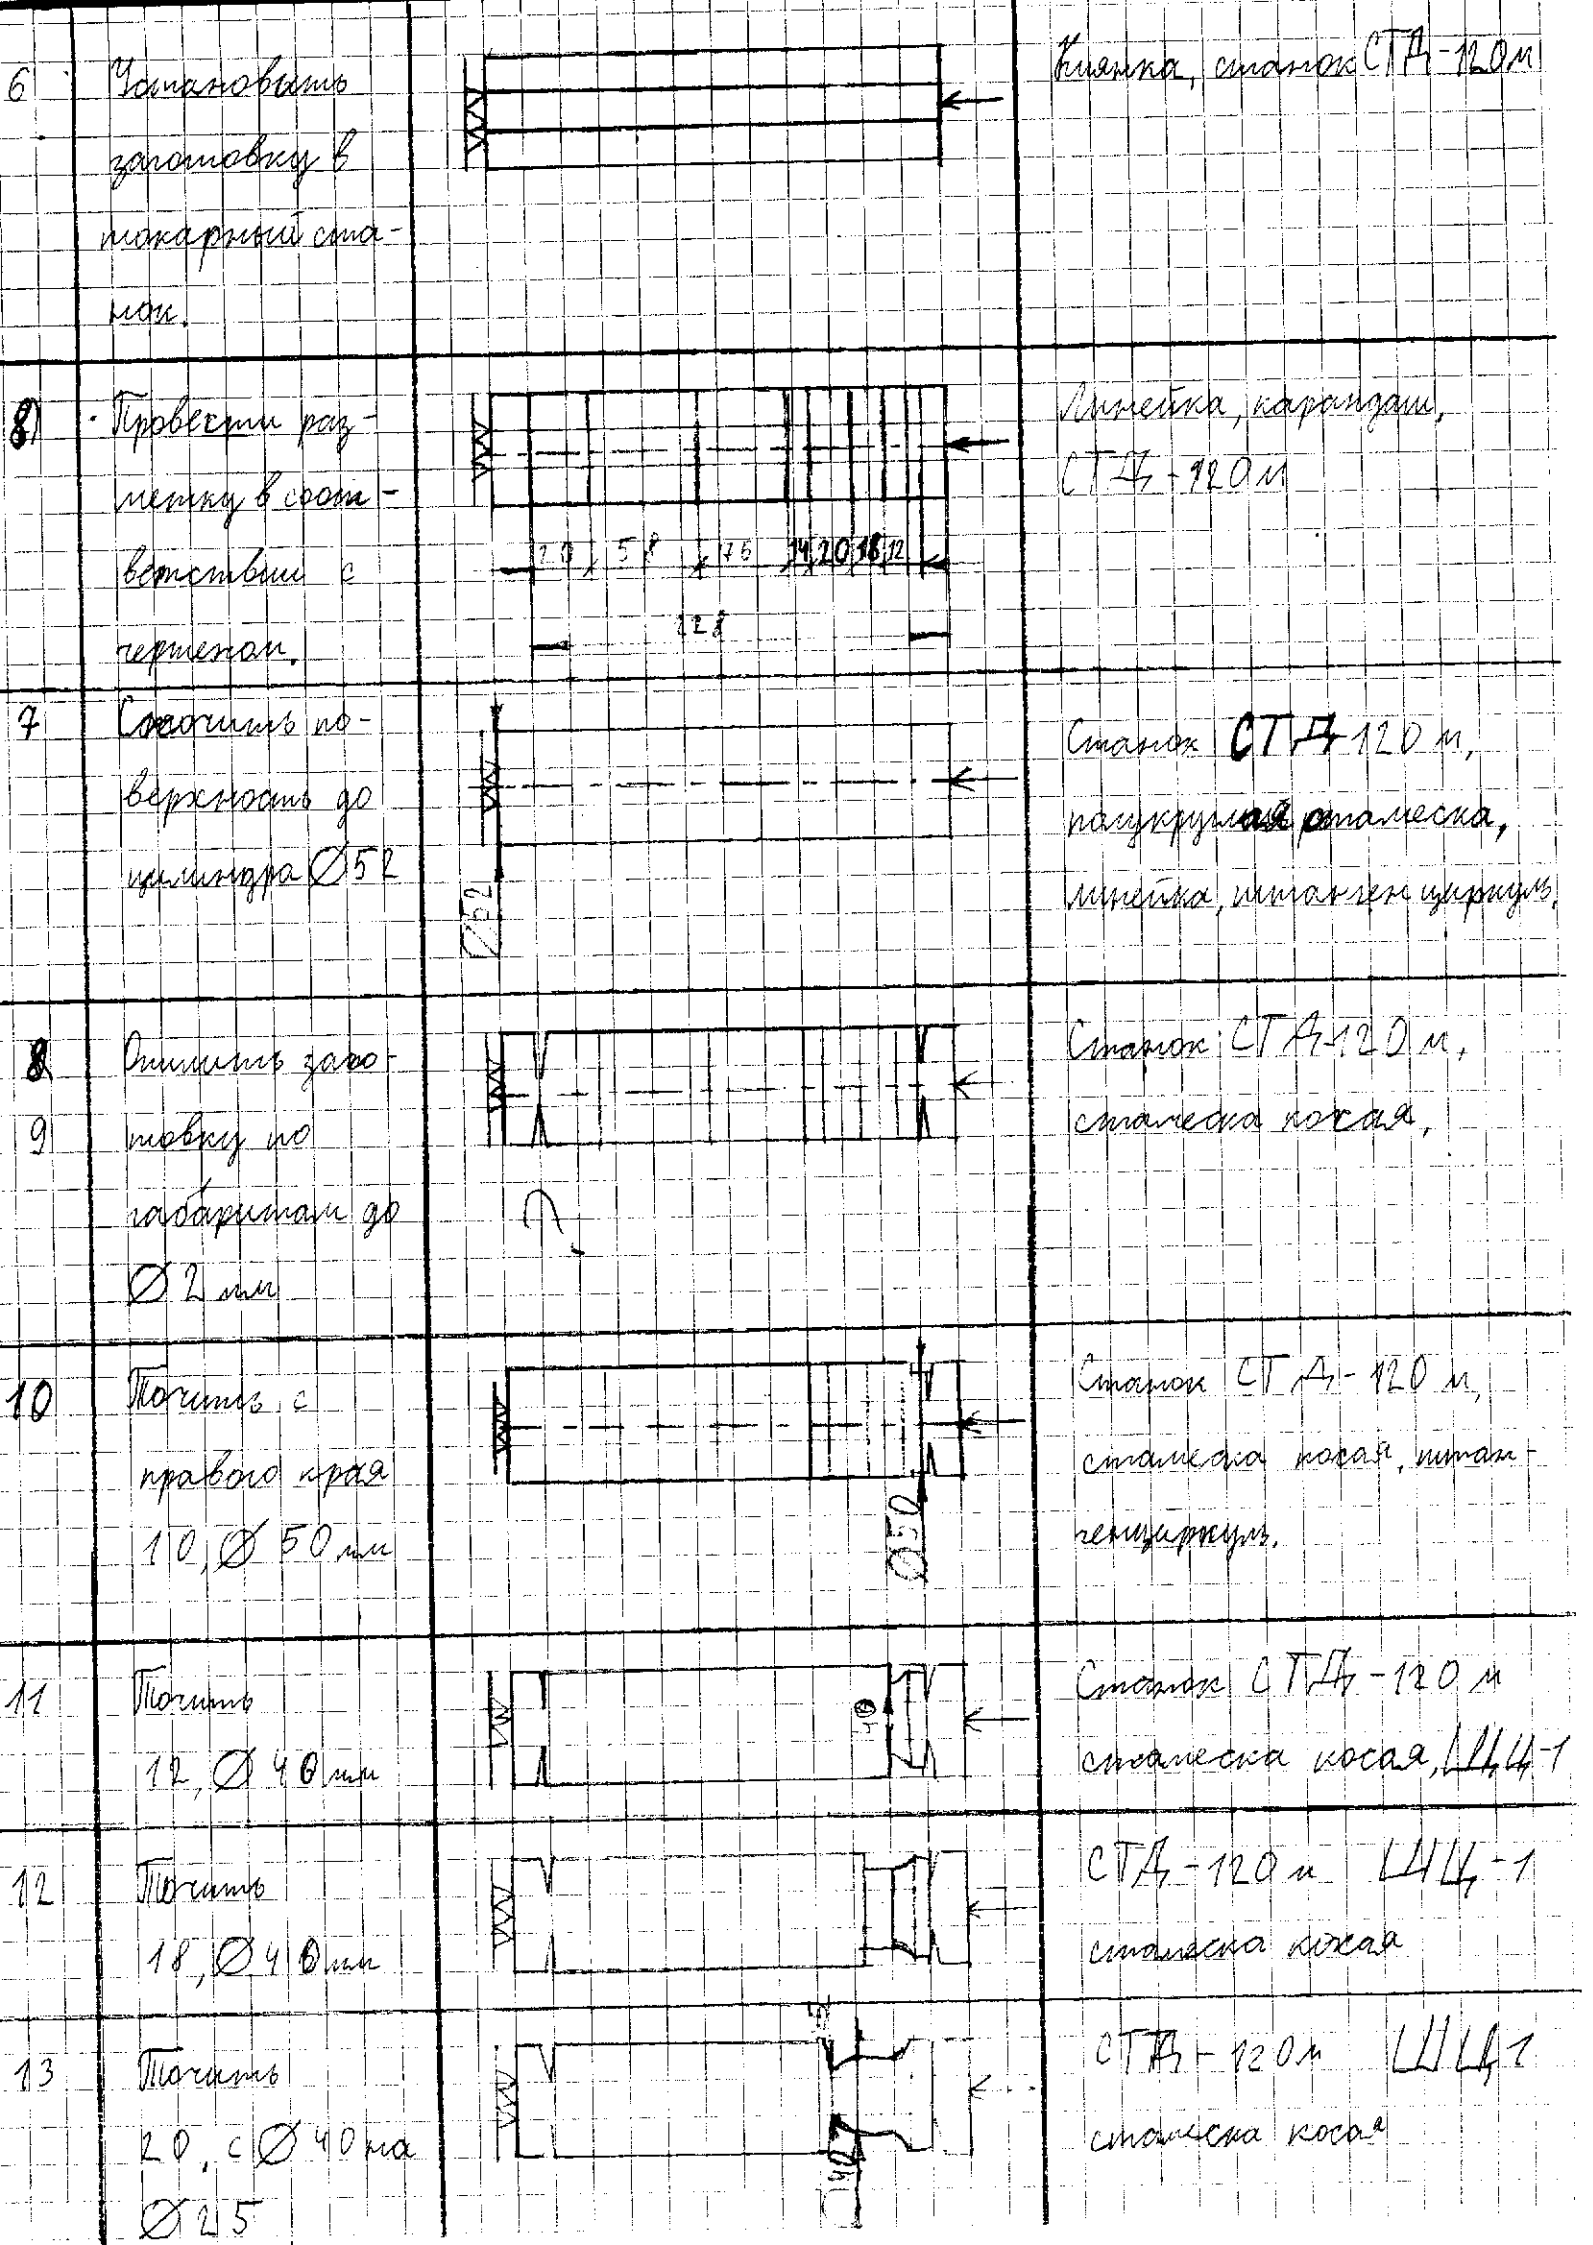 6
Установить
заготовку в
токарный ста-
нок.
Киянка, станок СТД-120м
8
Провести раз-
метку в соот-
ветствии с
58 76 14 20 18 12
128
Линейка, карандаш,
СТД-120м
7
Сточить по-
верхность до
цилиндра Ø52
Ø52
Станок СТД 120м,
полукруглая стамеска,
линейка, штангенциркуль,
8
9
Отпилить заго-
товку по
габаритам до
Ø 2 мм
Станок СТД-120м,
стамеска косая,
10
Точить с
правого края
10, Ø 50 мм
Ø50
Станок СТД-120 м,
стамеска косая, штан-
генциркуль.
11
Точить
12, Ø 40 мм
40
Станок СТД-120 м
стамеска косая, ШЦ-1
12
Точить
18, Ø 40 мм
СТД-120м ШЦ-1
стамеска косая
13
Точить
20, с Ø 40 на
Ø 25
СТД-120м ШЦ1
стамеска косая